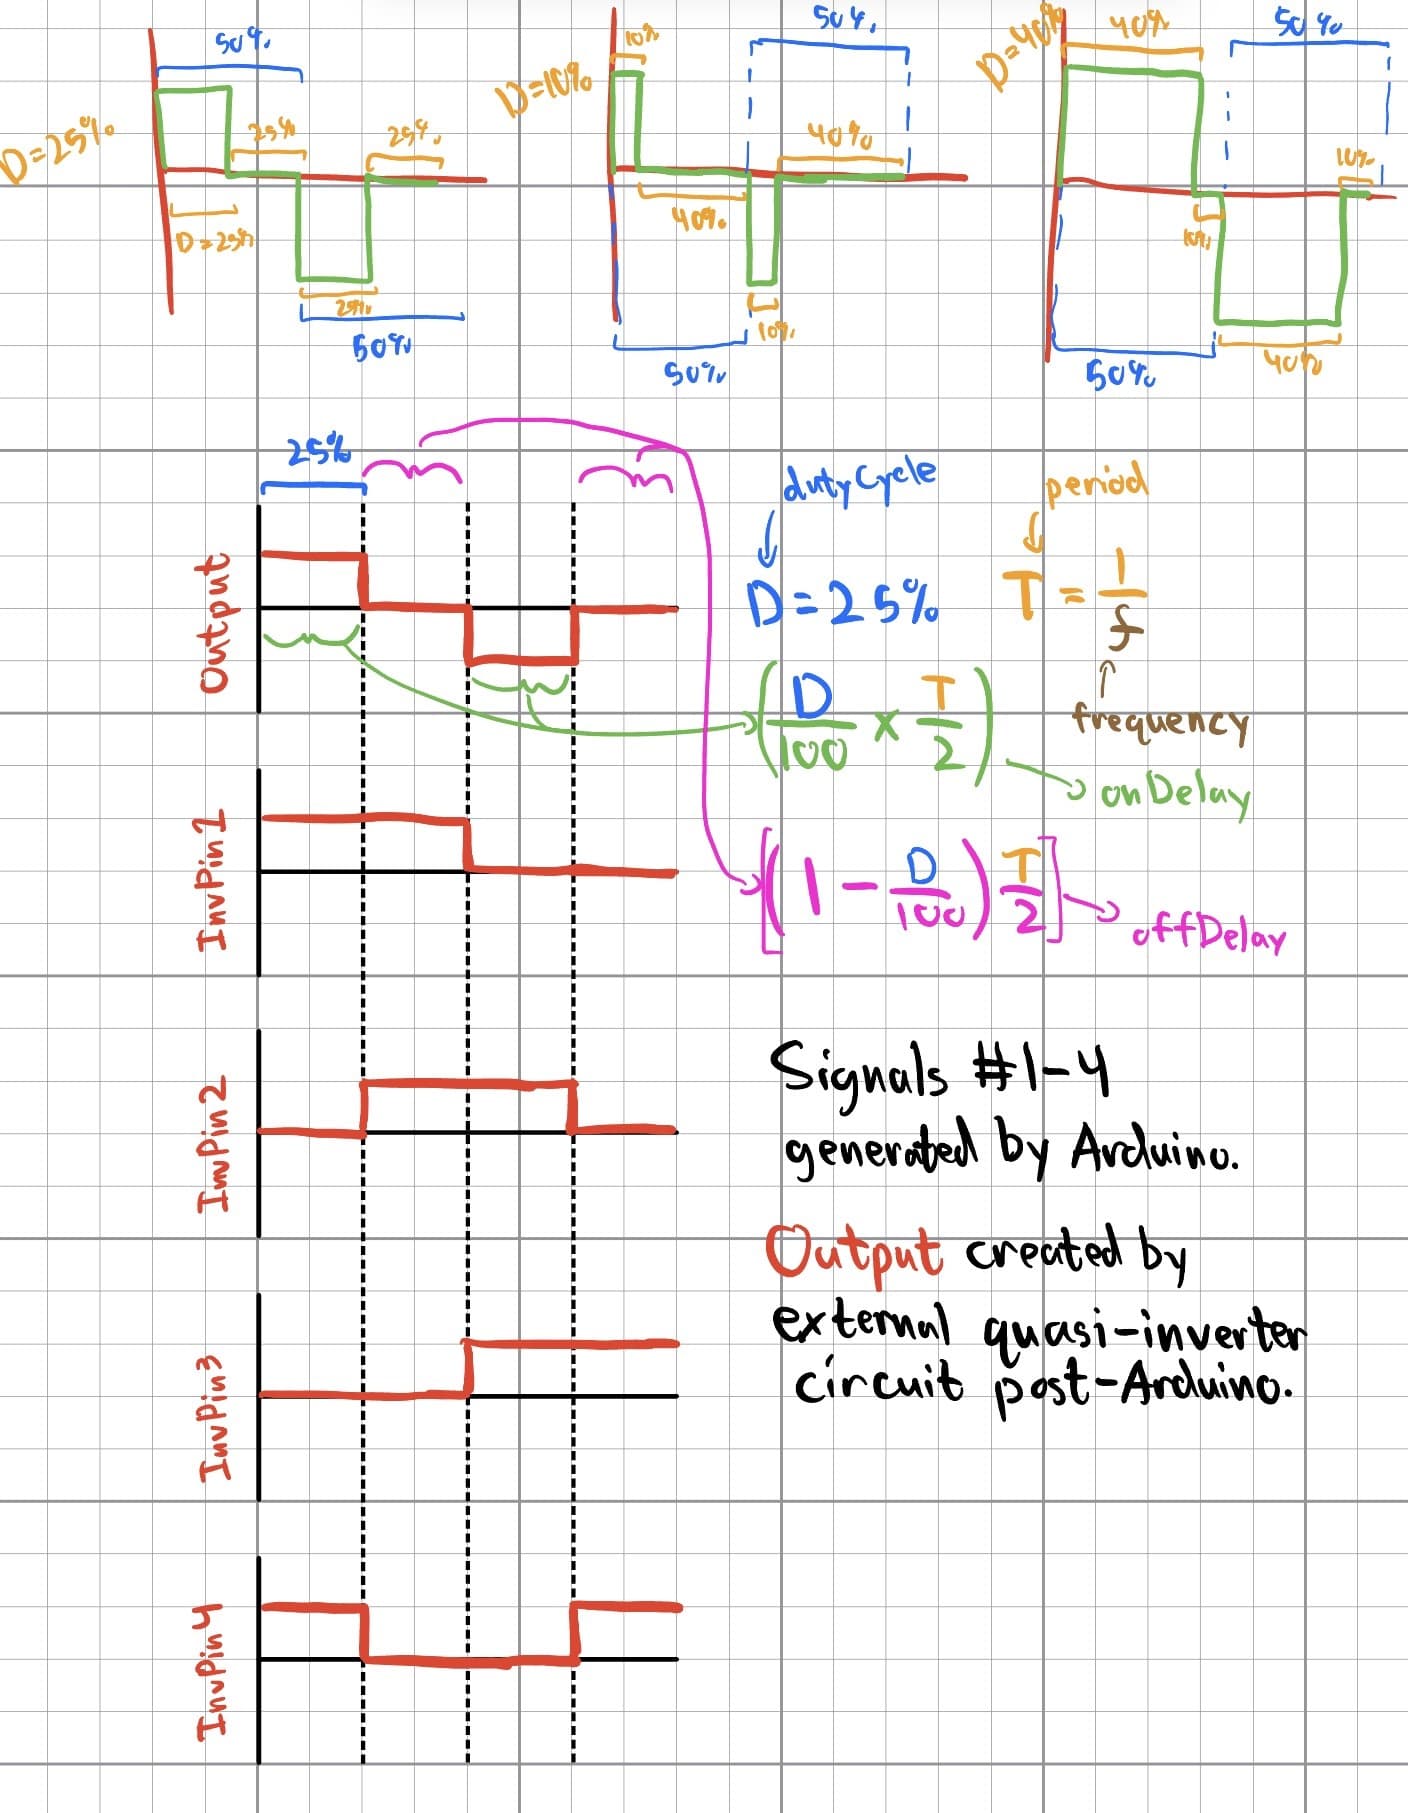 50%
D=25%
25%
25%
D=25%
25%
50%
50%
10%
D=10%
40%
40%
10%
50%
D=40%
40%
50%
10%
10%
40%
50%
25%
dutyCycle
period
D=25%
T = 1/f
frequency
Output
(D/100 × T/2)
onDelay
InvPin1
[(1 - D/100) T/2]
offDelay
InvPin2
Signals #1-4
generated by Arduino.
Output created by
external quasi-inverter
circuit post-Arduino.
InvPin3
InvPin4